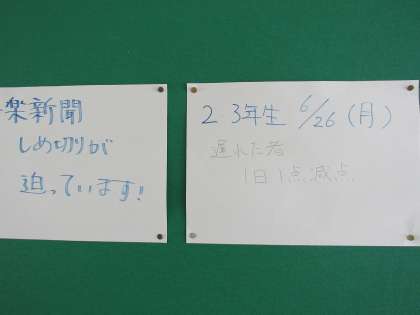 楽新聞
しめ切りが
迫っています!
2 3年生 6/26(月)
遅れた者
1日1点減点